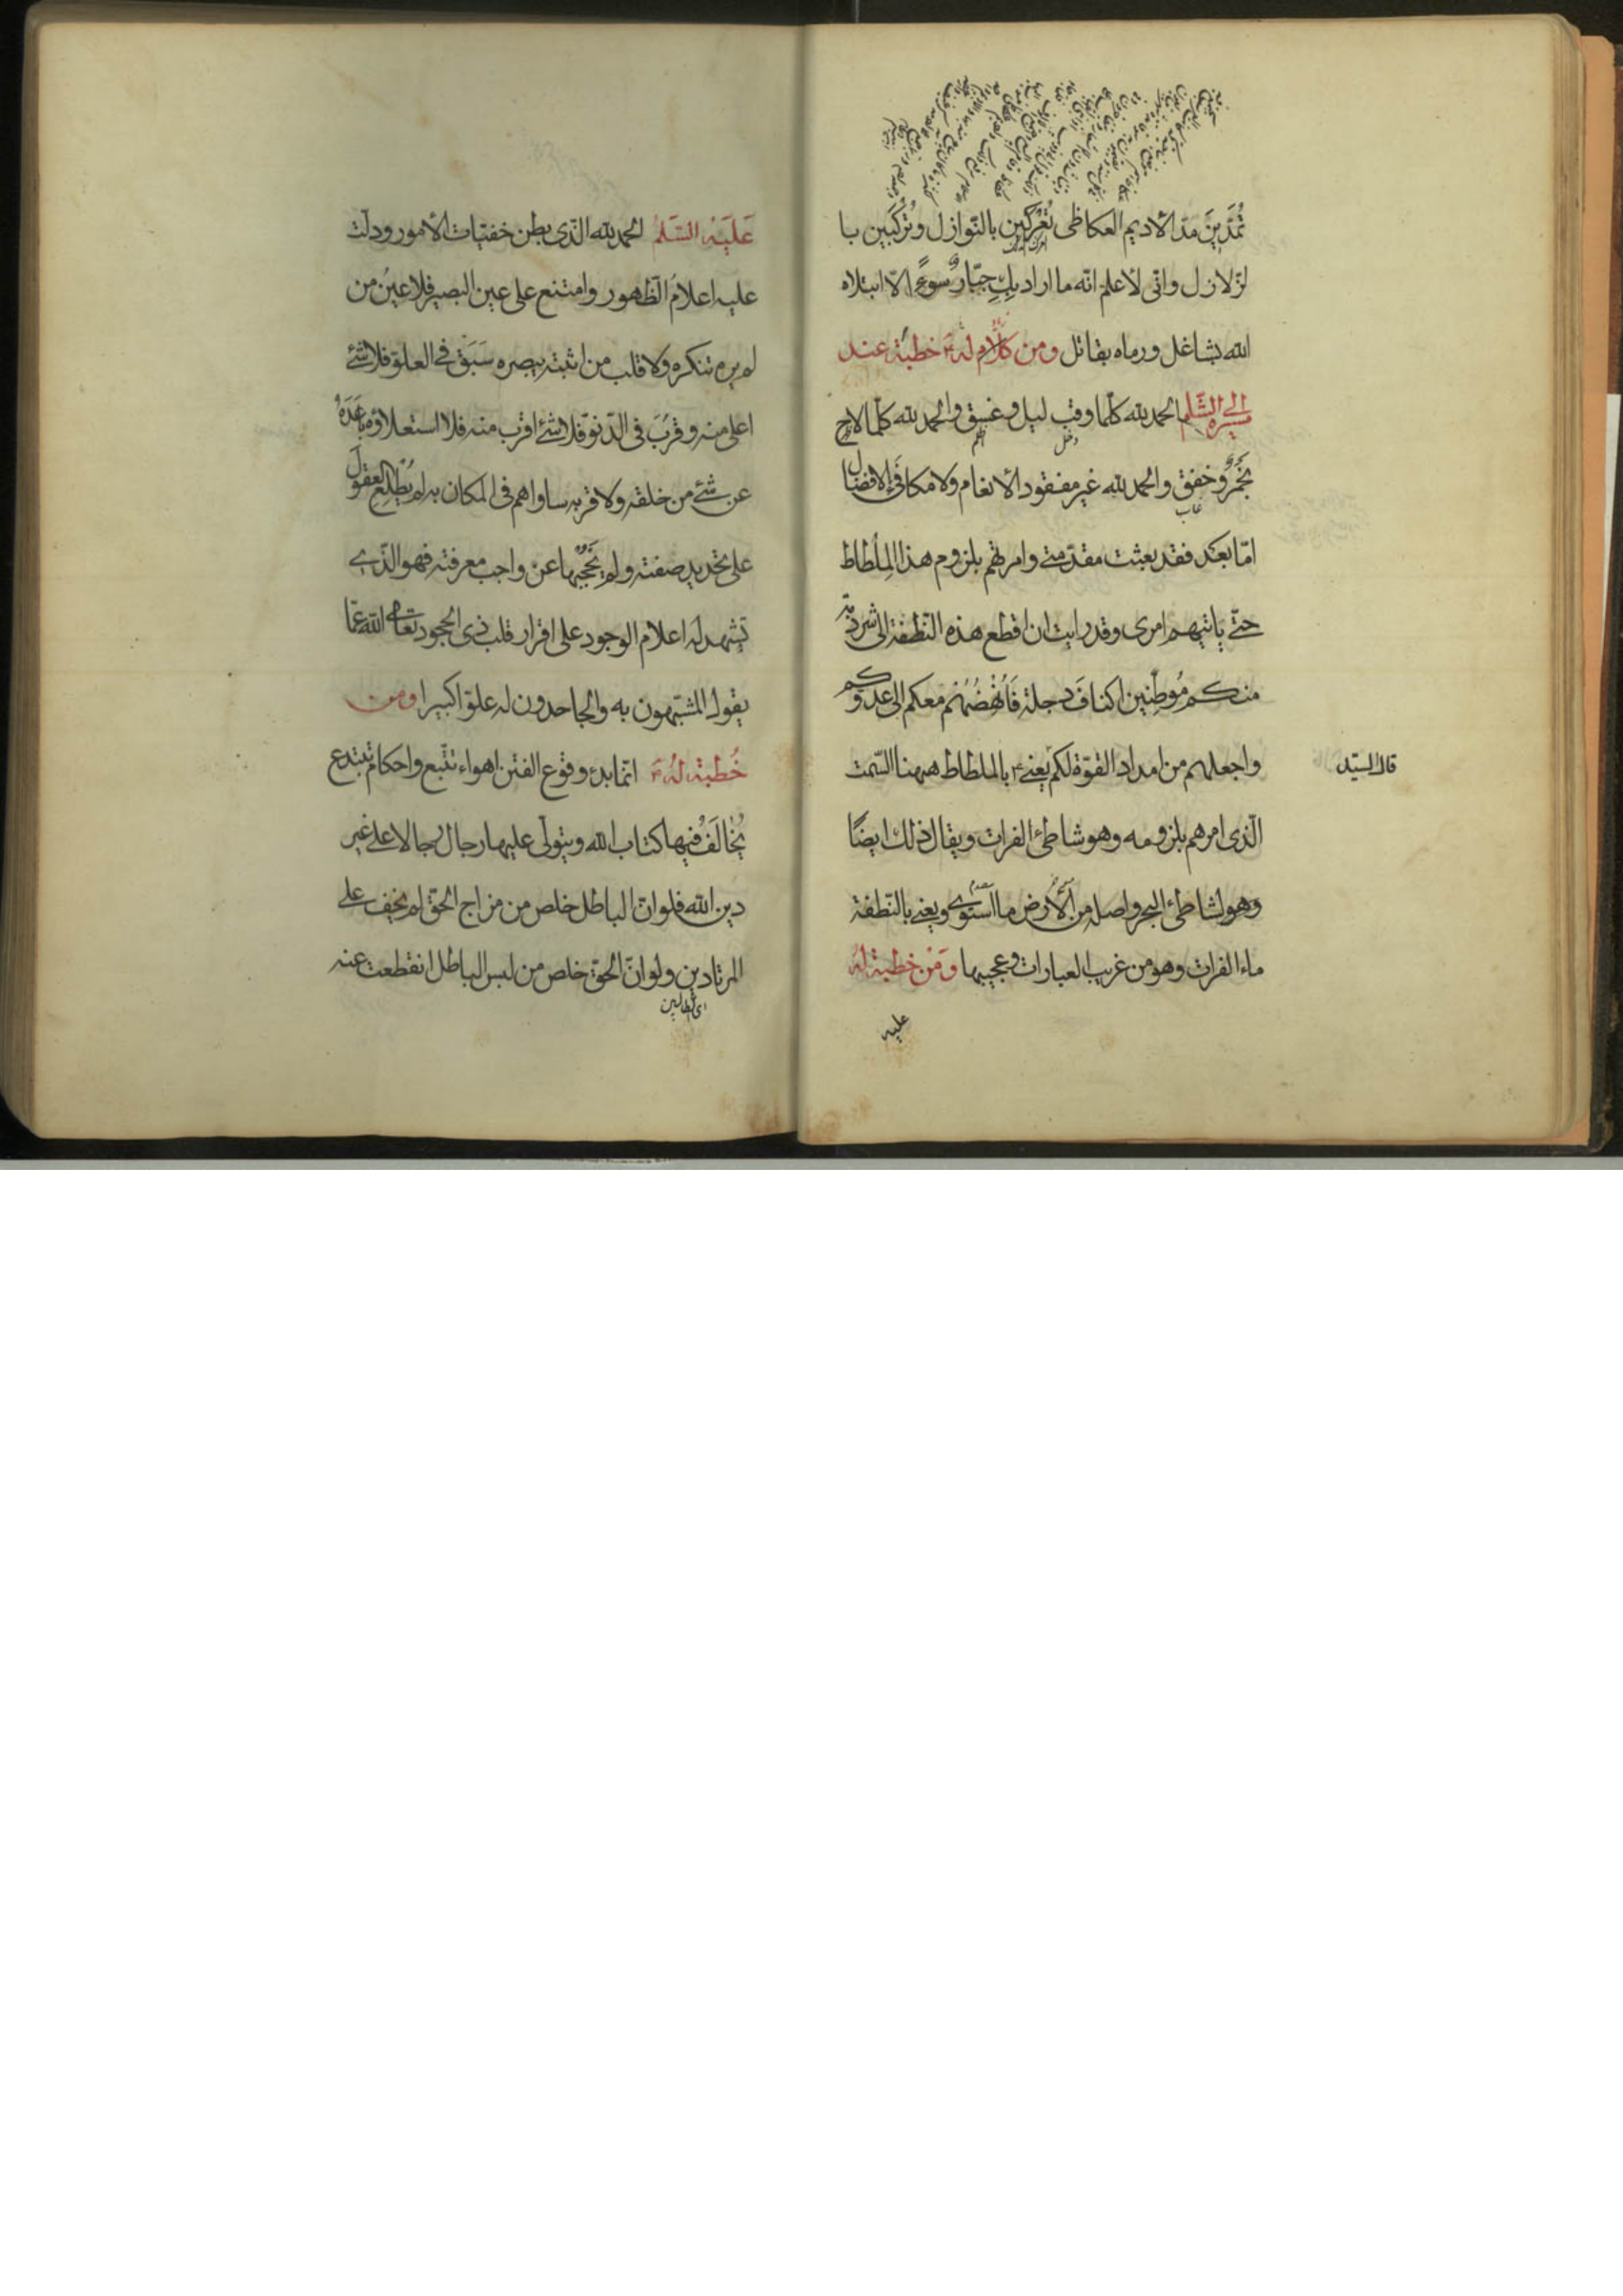 تُمَدِّينَ مَدّ الأديم العكاظى تُعْرَكين بالنّوازل وتُركَبين با
لزّلازل وانّى لأعلم انّه ما اراد بكِ جبّار سوءً الّا ابتلاه
الله بشاغل ورماه بقاتل ومن كلام له خطبة عند
مسيره الى الشّام الحمد لله كلّما وقب ليل وغسق والحمد لله كلّما لاح
دخل
اظلم
نجم وخفق والحمد لله غير مفقود الأنعام ولا مكافَى الافضال
غاب
امّا بعد فقد بعثت مقدّمتى وامرتهم بلزوم هذا المِلْطاط
حتّى ياتيهم امرى وقد رايت ان اقطع هذه النّطفة الى شرذمة
منكم مُوطِنين اكنافَ دجلة فَاُنْهِضُهُم معكم الى عدوّكم
واجعلهم من امداد القوّة لكم يعنى ع بالملطاط ههنا السّمت
قال السيّد
الّذى امرهم بلزومه وهو شاطئ الفرات ويقال ذلك ايضًا
وهو لشاطئ البحر واصله من الأرض ما استوى ويعنى بالنّطفة
ماء الفرات وهو من غريب العبارات وعجيبها ومن خطبة له
عليه
عَليَه السَّلمُ الحمد لله الّذى بطن خفيّات الأمور ودلّت
عليه اعلامُ الظّهور وامتنع على عين البصير فلا عينُ من
لم يره تنكره ولا قلب من اثبته يبصره سَبَقَ فى العلوّ فلا شئ
اعلى منه وقَرُبَ فى الدّنوّ فلا شئ اقرب منه فلا استعلاؤه باعَدَهُ
عن شئ من خلقه ولا قربه ساواهم فى المكان به لم يُطْلِعِ العقولَ
على تحديد صفته ولم يَحْجُبْها عن واجب معرفته فهو الّذى
تشهد له اعلام الوجود على اقرار قلب ذى الجحود تعالى الله عمّا
يقول المشبّهون به والجاحدون له علوّا كبيرا ومن
خُطبة له ع انّما بدء وقوع الفتن اهواء تتّبع واحكام تبتدع
يُخَالَفُ فيها كتاب الله ويتولّى عليها رجال رجالا على غير
دين الله فلو انّ الباطل خلص من مزاج الحقّ لم يخف على
المرتادين ولو انّ الحقّ خلص من لبس الباطل انقطعت عنه
اى الطالبين